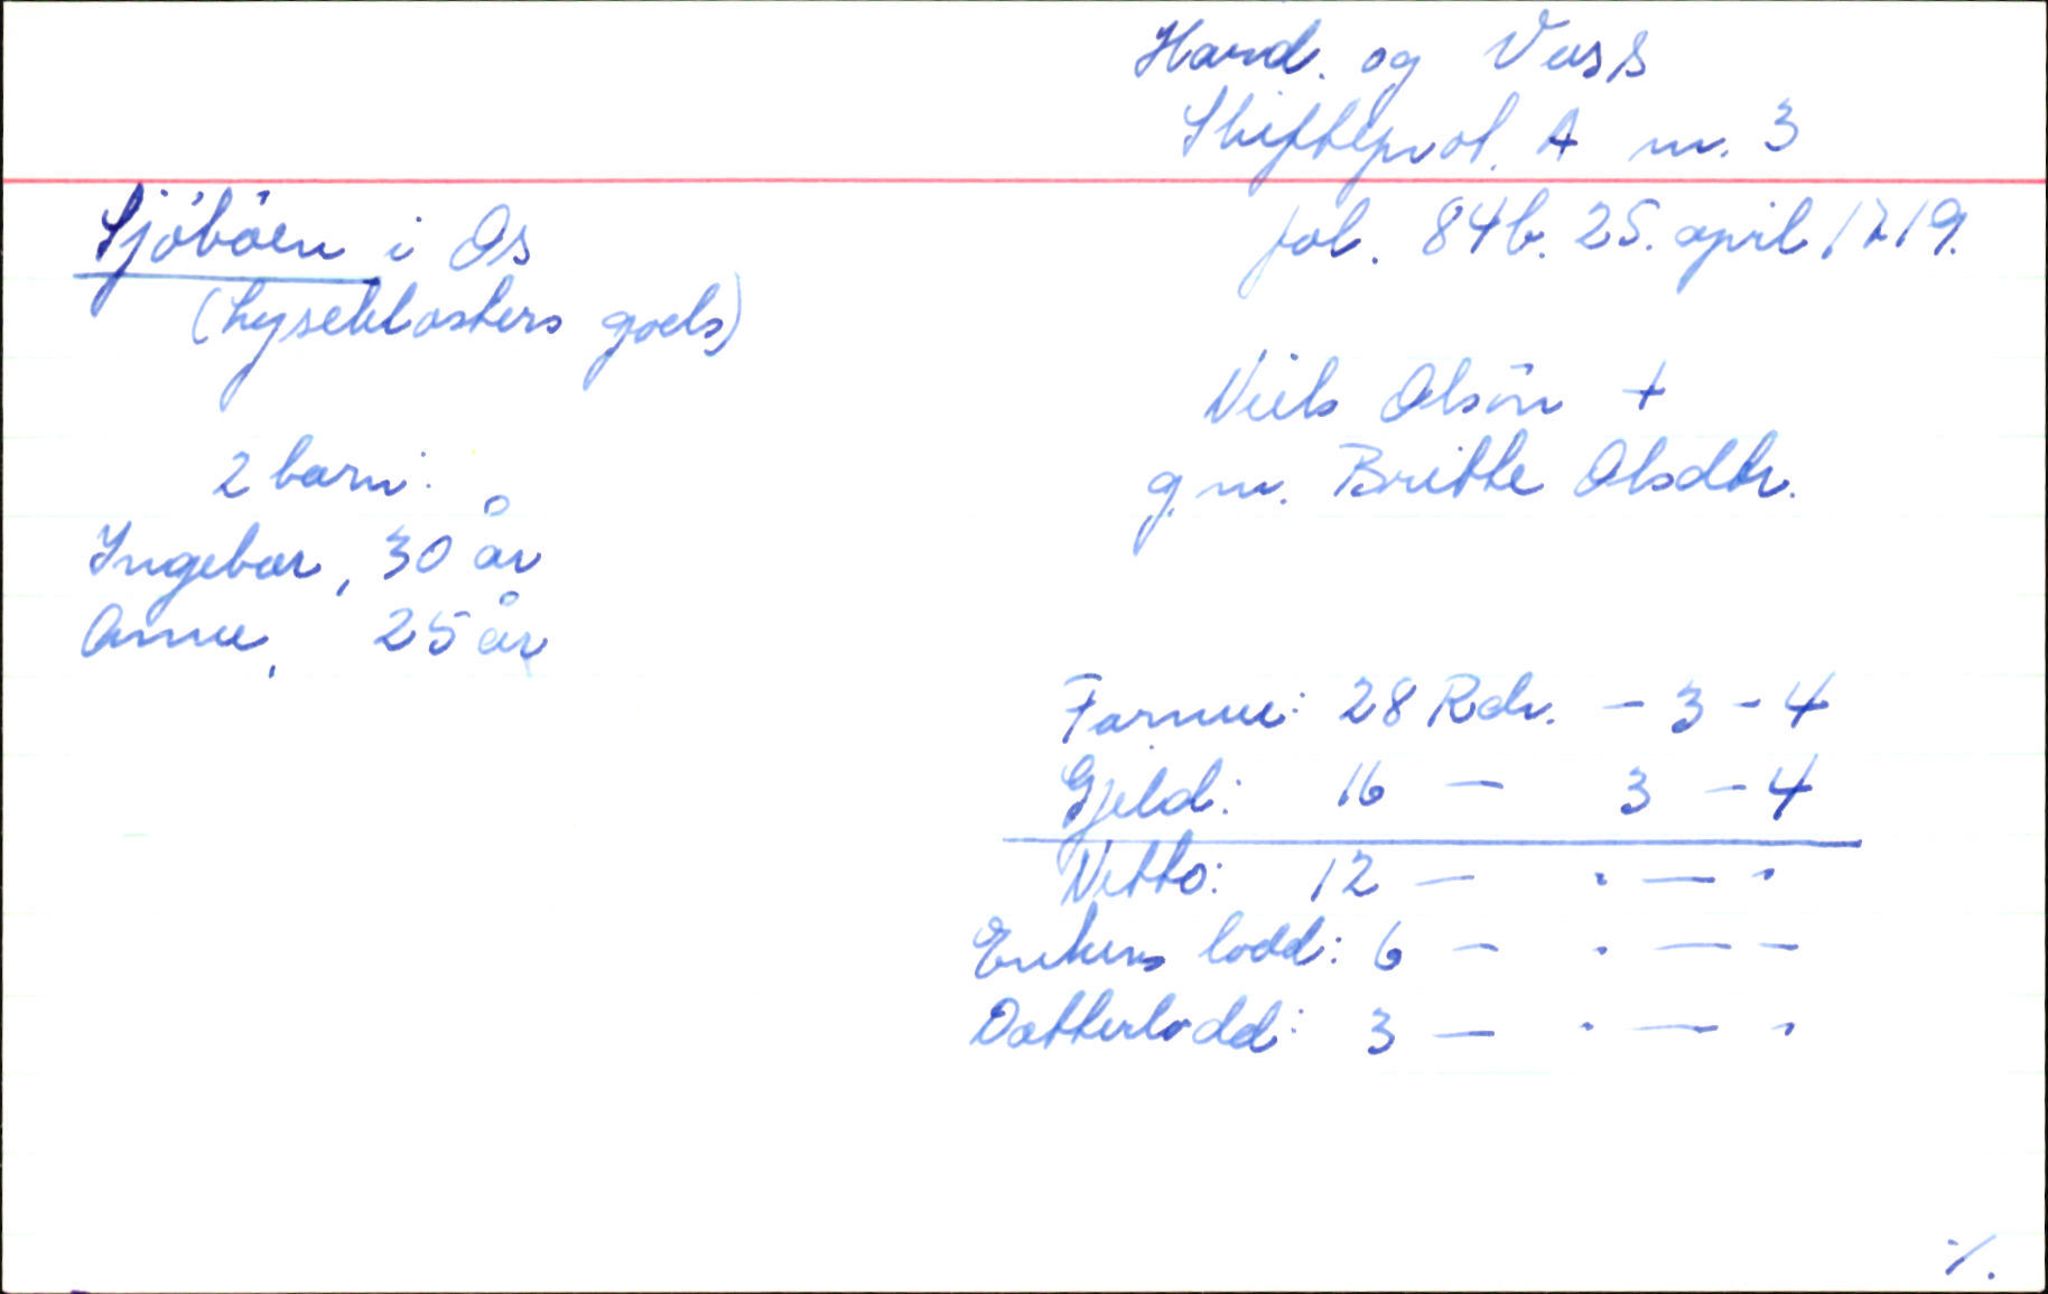 Hard. og Voss
Skifteprot. A nr. 3
fol. 84b. 25. april 1719.
Sjöböen i Os
(Lyseklosters gods)
Niels Olsön +
g.m. Britte Olsdtr.
2 barn:
Ingebor, 30 år
Anne, 25 år
Formue: 28 Rdr. - 3 - 4
Gjeld: 16 - 3 - 4
Netto: 12 - . - .
Enkens lodd: 6 - . - -
Datterlodd: 3 - . - .